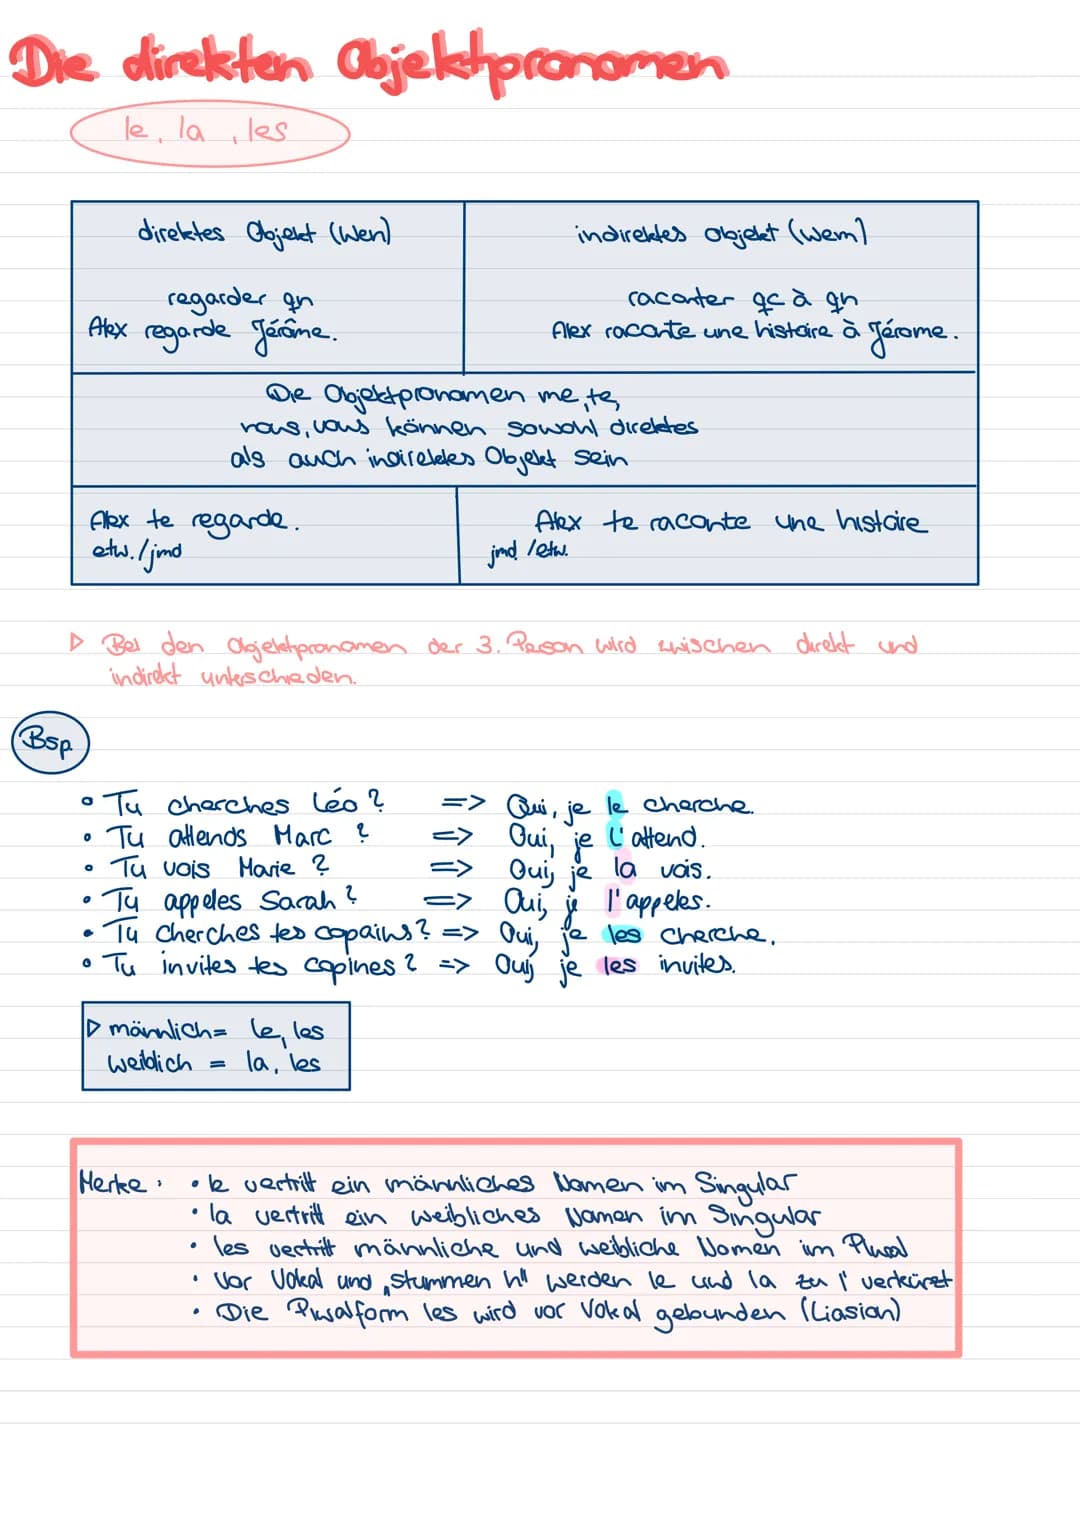 Die direkten Objektpronomen
le, la, les
direktes Objekt (Wen)
indirektes Objekt (Wem)
regarder qn
Alex regarde Jérôme.
raconter qc à qn
Alex raconte une histoire à Jérome.
Die Objektpronomen me, te,
nous, vous können sowohl direktes
als auch indirektes Objekt sein
Alex te regarde.
etw./jmd
Alex te raconte une histoire
jmd./etw.
▷ Bei den Objektpronomen der 3. Person wird zwischen direkt und
indirekt unterschieden.
Bsp.
• Tu cherches Léo? => Oui, je le cherche.
• Tu attends Marc? => Oui, je l'attend.
• Tu vois Marie? => Oui, je la vois.
• Tu appeles Sarah? => Oui, je l'appeles.
• Tu cherches tes copains? => Oui, je les cherche.
• Tu invites tes copines? => Oui, je les invites.
▷ männlich = le, les
weiblich = la, les
Merke: • le vertritt ein männliches Nomen im Singular
• la vertritt ein weibliches Nomen im Singular
• les vertritt männliche und weibliche Nomen im Plural
• Vor Vokal und „stummen h" werden le und la zu l' verkürzt
• Die Pluralform les wird vor Vokal gebunden (Liasion)